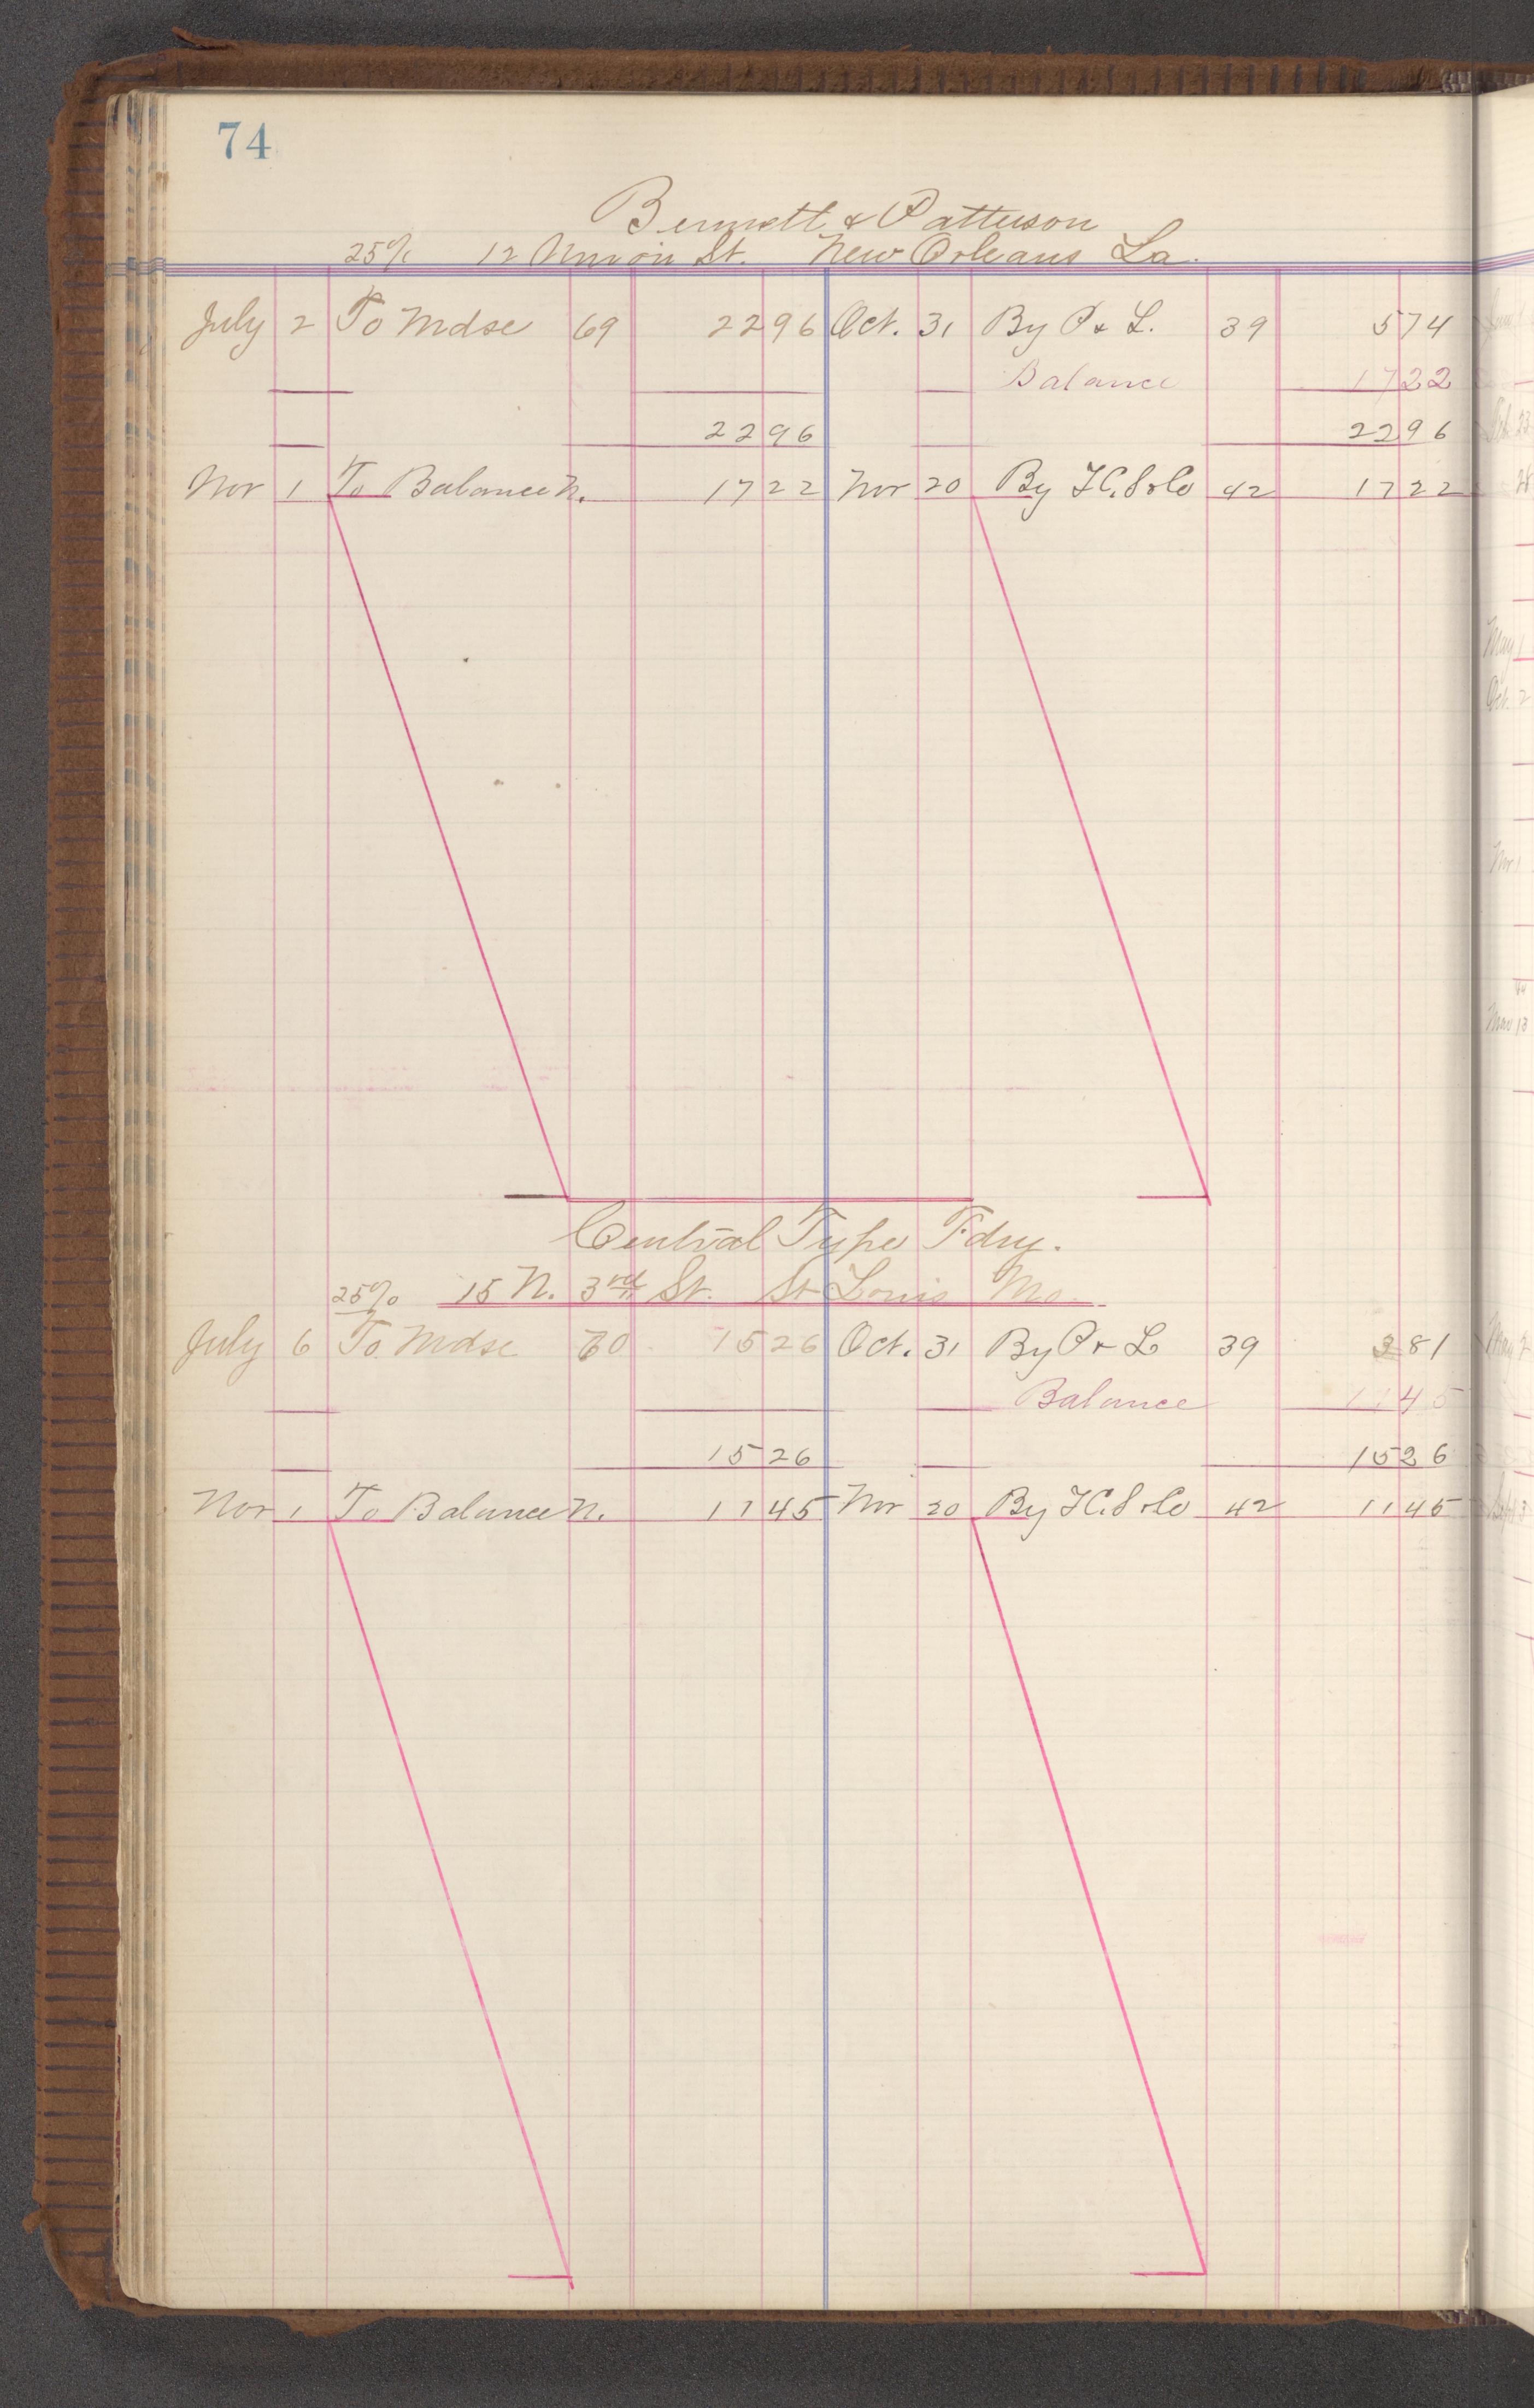 74
Bennett & Patterson
25% 12 Union St. New Orleans La.
July 2 To Mdse 69 2296 Oct. 31 By P & L. 39 574
Balance 1722
2296 2296
Nov 1 To Balance N. 1722 Nov 20 By H.C.S & Co 42 1722
Central Type Fdry.
25% 15 N. 3rd St. St Louis Mo.
July 6 To Mdse 70 1526 Oct. 31 By P & L 39 381
Balance 1145
1526 1526
Nov 1 To Balance N. 1145 Nov 20 By H.C.S & Co 42 1145